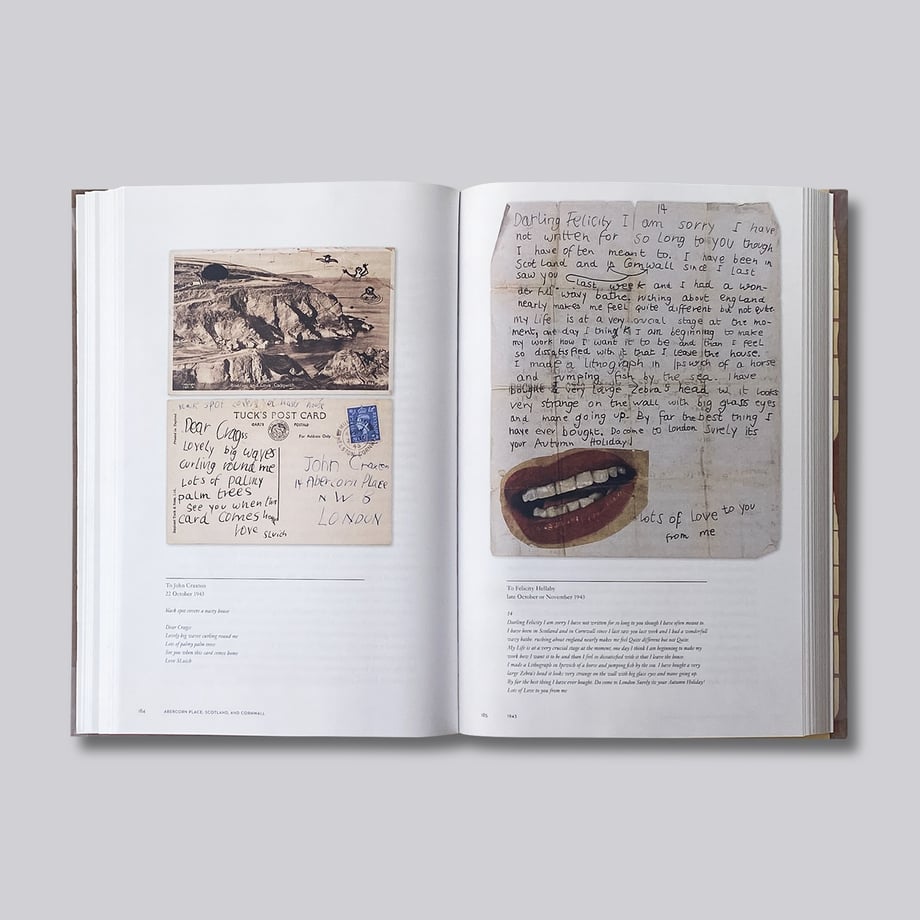 Cove, Cadgwith
black spot covers a nasty house
TUCK'S POST CARD
CARTE POSTALE
For Address Only
Printed in England
Dear Cragis
Lovely big waves
curling round me
Lots of palmy
palm trees
See you when this
card comes
love Sluich
John Craxton
14 Abercorn Place
N W 8
LONDON
To John Craxton
22 October 1943
black spot covers a nasty house
Dear Cragis
Lovely big waves curling round me
Lots of palmy palm trees
See you when this card comes home
Love SLuich
164 ABERCORN PLACE, SCOTLAND, AND CORNWALL
14
Darling Felicity I am sorry I have
not written for so long to you though
I have often meant to. I have been in
Scotland and in Cornwall since I last
saw you last week and I had a won-
derfull wavy bathe. rushing about england
nearly makes me feel quite different but not quite.
my Life is at a very crucial stage at the mo-
ment, one day I think I am beginning to make
my work how I want it to be and than I feel
so dissatisfied with it that I leave the house.
I made a Lithograph in Ipswich of a horse
and jumping fish by the sea. I have
bought a very large Zebra's head it looks
very strange on the wall with big glass eyes
and mane going up. By far the best thing I
have ever bought. Do come to London Surely its
your Autumn Holiday!
Lots of Love to you
from me
To Felicity Hellaby
late October or November 1943
14
Darling Felicity I am sorry I have not written for so long to you though I have often meant to.
I have been in Scotland and in Cornwall since I last saw you last week and I had a wonderfull
wavy bathe, rushing about england nearly makes me feel Quite different but not Quite.
My Life is at a very crucial stage at the moment, one day I think I am beginning to make my
work how I want it to be and than I feel so dissatisfied with it that I leave the house.
I made a Lithograph in Ipswich of a horse and jumping fish by the sea. I have bought a very
large Zebra's head it looks very strange on the wall with big glass eyes and mane going up.
By far the best thing I have ever bought. Do come to London Surely its your Autumn Holiday!
Lots of Love to you from me
165 1943